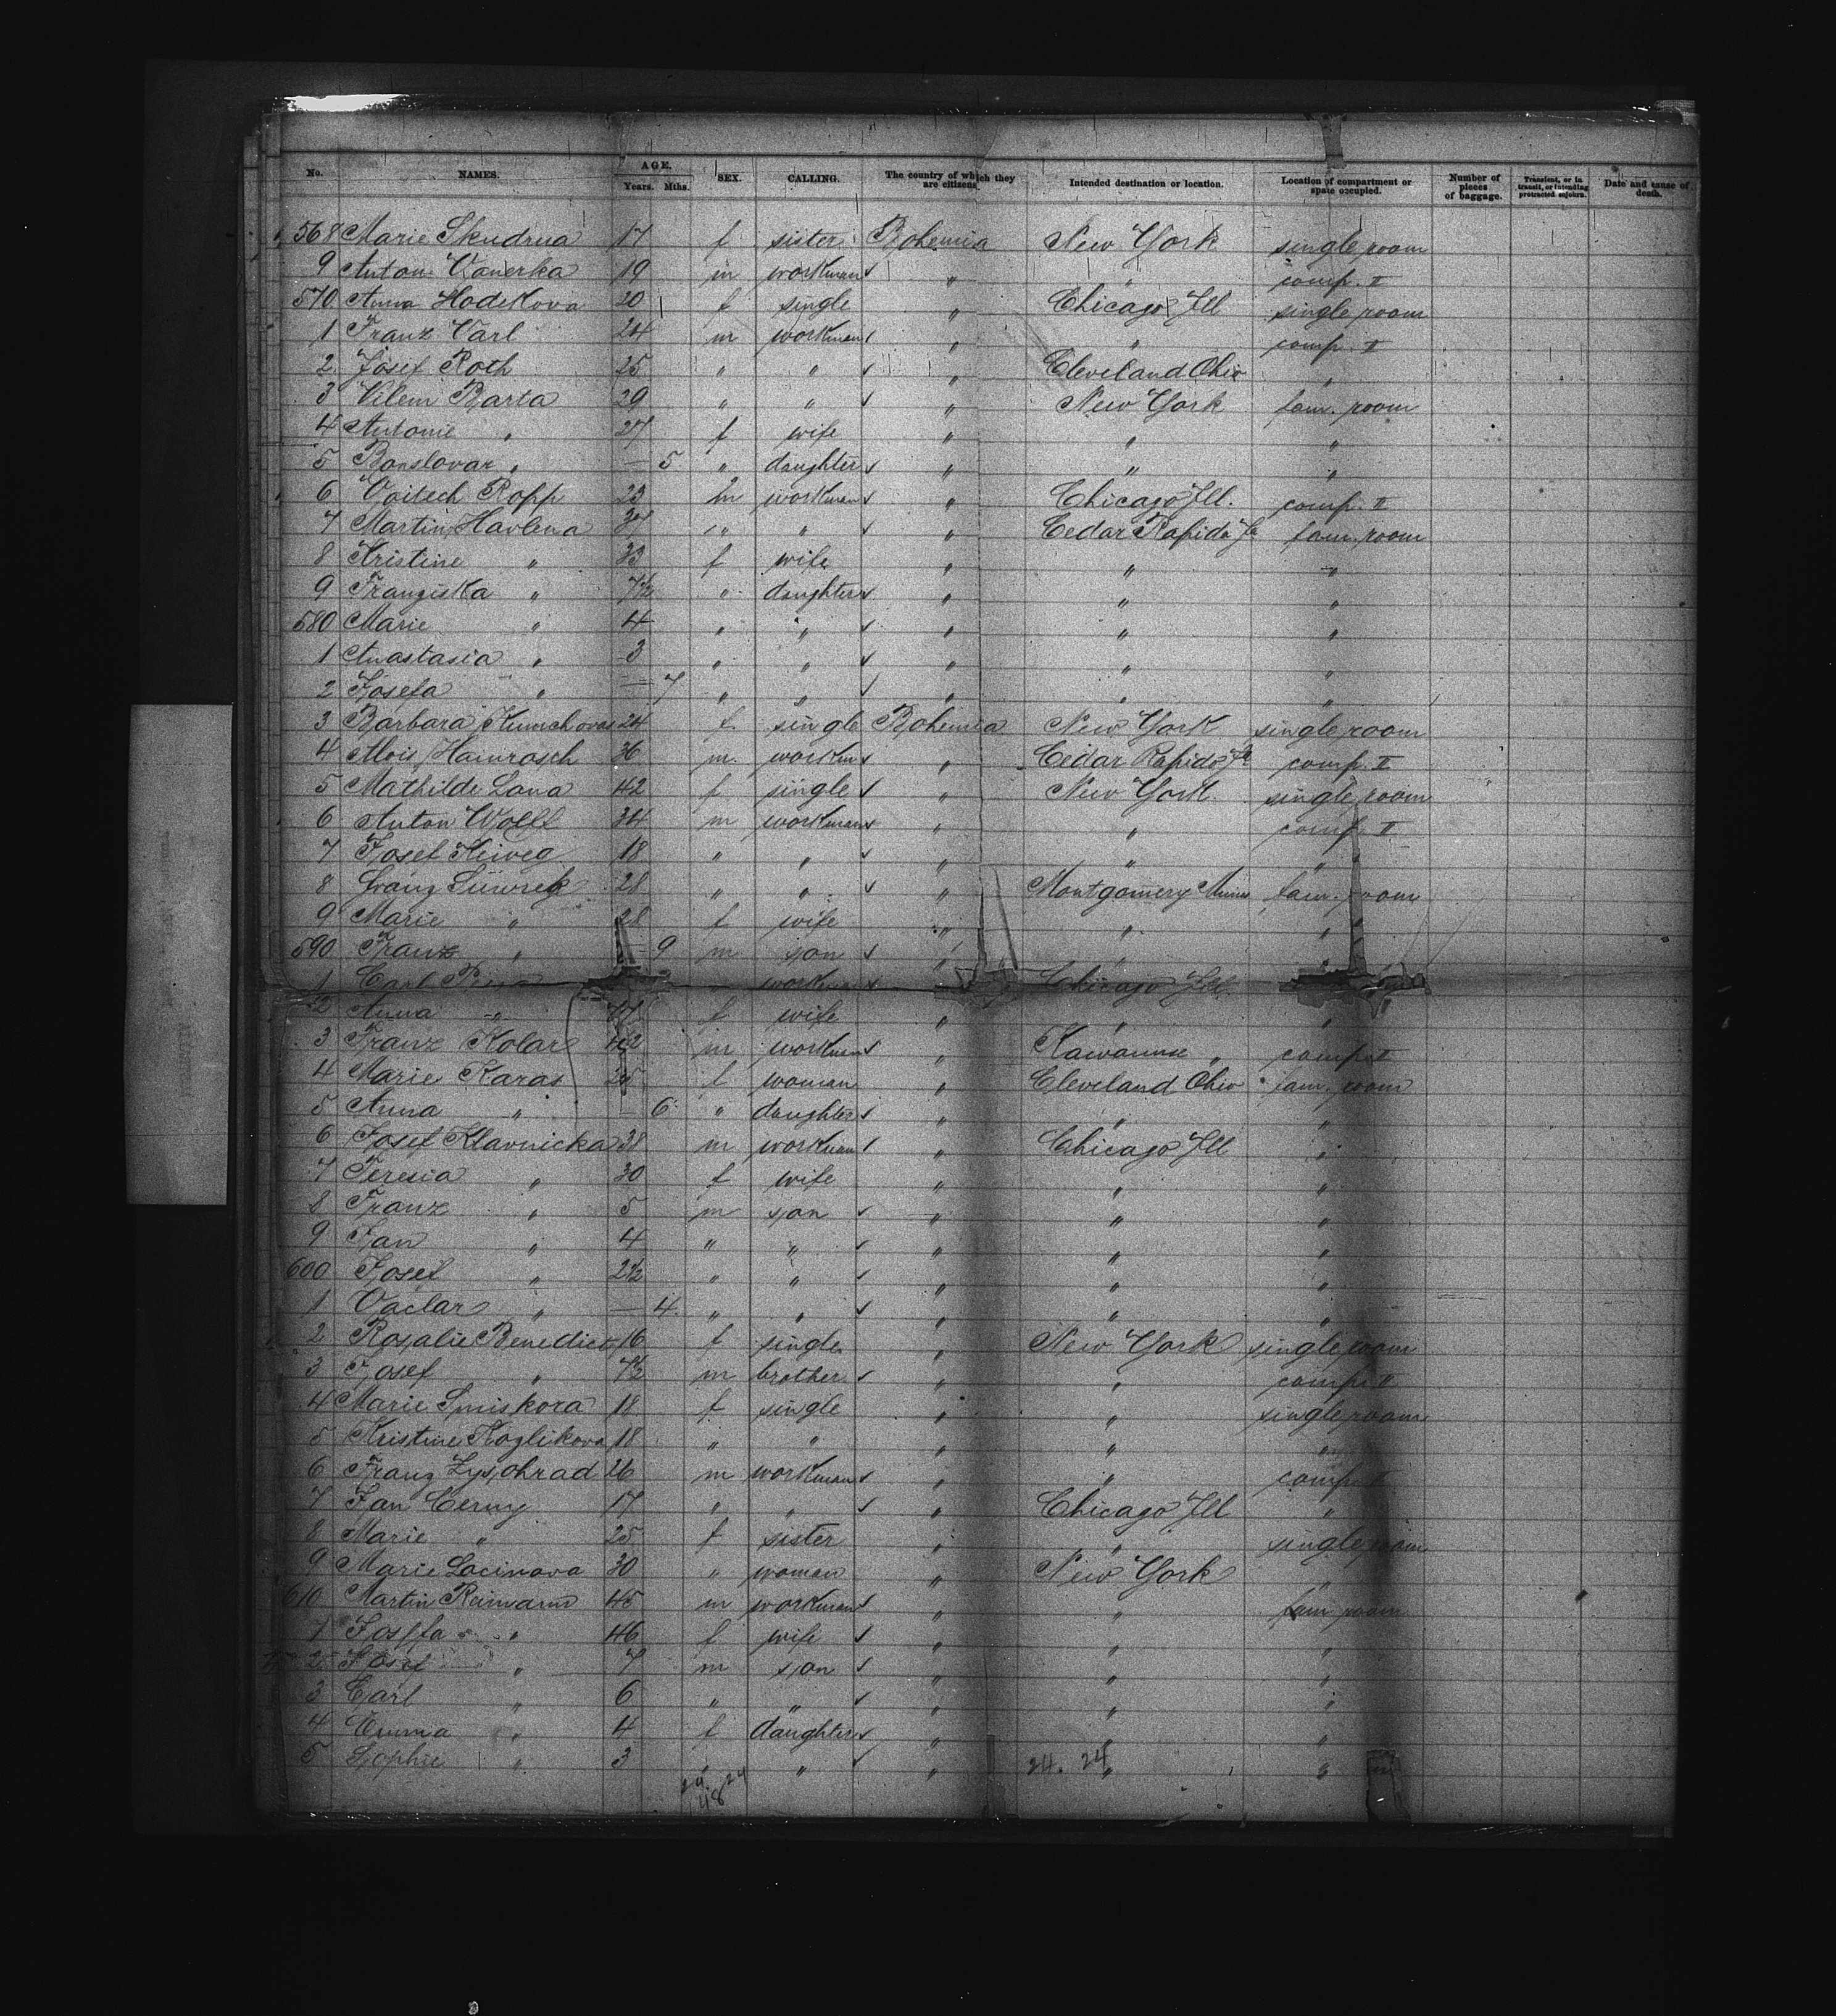 No. NAMES. AGE. Years. Mths. SEX. CALLING. The country of which they are citizens. Intended destination or location. Location of compartment or space occupied. Number of pieces of baggage. Transient, or in transit, or intending protracted sojourn. Date and cause of death.
568 Marie Skudrna 17 f sister Bohemia New York single room
9 Anton Vanerka 19 m workman " " comp. II
570 Anna Hodekova 20 f single " Chicago Ill single room
1 Franz Varl 24 m workman " " comp. II
2 Josef Roth 25 " " " Cleveland Ohio "
3 Vilem Barta 29 " " " New York fam. room
4 Antonie " 27 f wife " " "
5 " — 5 " daughter " " "
6 Voitech Popp 23 m workman " Chicago Ill. comp. II
7 Martin Havlena 37 " " " Cedar Rapids Ia fam. room
8 Kristine " 33 f wife " " "
9 Franziska " 7½ " daughter " " "
580 Marie " 4 " " " " "
1 Anastasia " 3 " " " " "
2 Josefa " — 7 " " " " "
3 Barbara 24 f single Bohemia New York single room
4 Alois Hamrosch 36 m. workm " Cedar Rapids Ia comp. II
5 Mathilde Lana 42 f single " New York single room
6 Anton Wolff 34 m workman " " comp. II
7 Josef 18 " " " " "
8 Franz 28 " " " Montgomery Minn fam. room
9 Marie " 28 f wife " " "
590 Franz " — 9 m son " " "
1 Carl workman Chicago Ill.
2 Anna " f wife " " "
3 Franz Kolar 42 m workman " " comp. II
4 Marie Karas 25 f woman " Cleveland Ohio fam. room
5 Anna " — 6 " daughter " " "
6 Josef Klavnicka 38 m workman " Chicago Ill "
7 Teresia " 30 f wife " " "
8 Franz " 5 m son " " "
9 Jan " 4 " " " " "
600 Josef " 2½ " " " " "
1 Vaclav " — 4 " " " " "
2 Rosalie Benedict 16 f single " New York single room
3 Josef " 7½ m brother " " comp. II
4 Marie Smiskova 18 f single " " single room
5 Kristine Koglikova 18 " " " " "
6 Franz 26 m workman " " comp. II
7 Jan Cerny 17 " " " Chicago Ill "
8 Marie " 25 f sister " " single room
9 Marie Lacinova 30 " woman " New York "
610 Martin Reimann 45 m workman " " fam room
1 Josefa " 46 f wife " " "
2 Josef " 7 m son " " "
3 Carl " 6 " " " " "
4 Emma " 4 f daughter " " "
5 Sophie " 3 " " " " "
24. 24
24 24
48